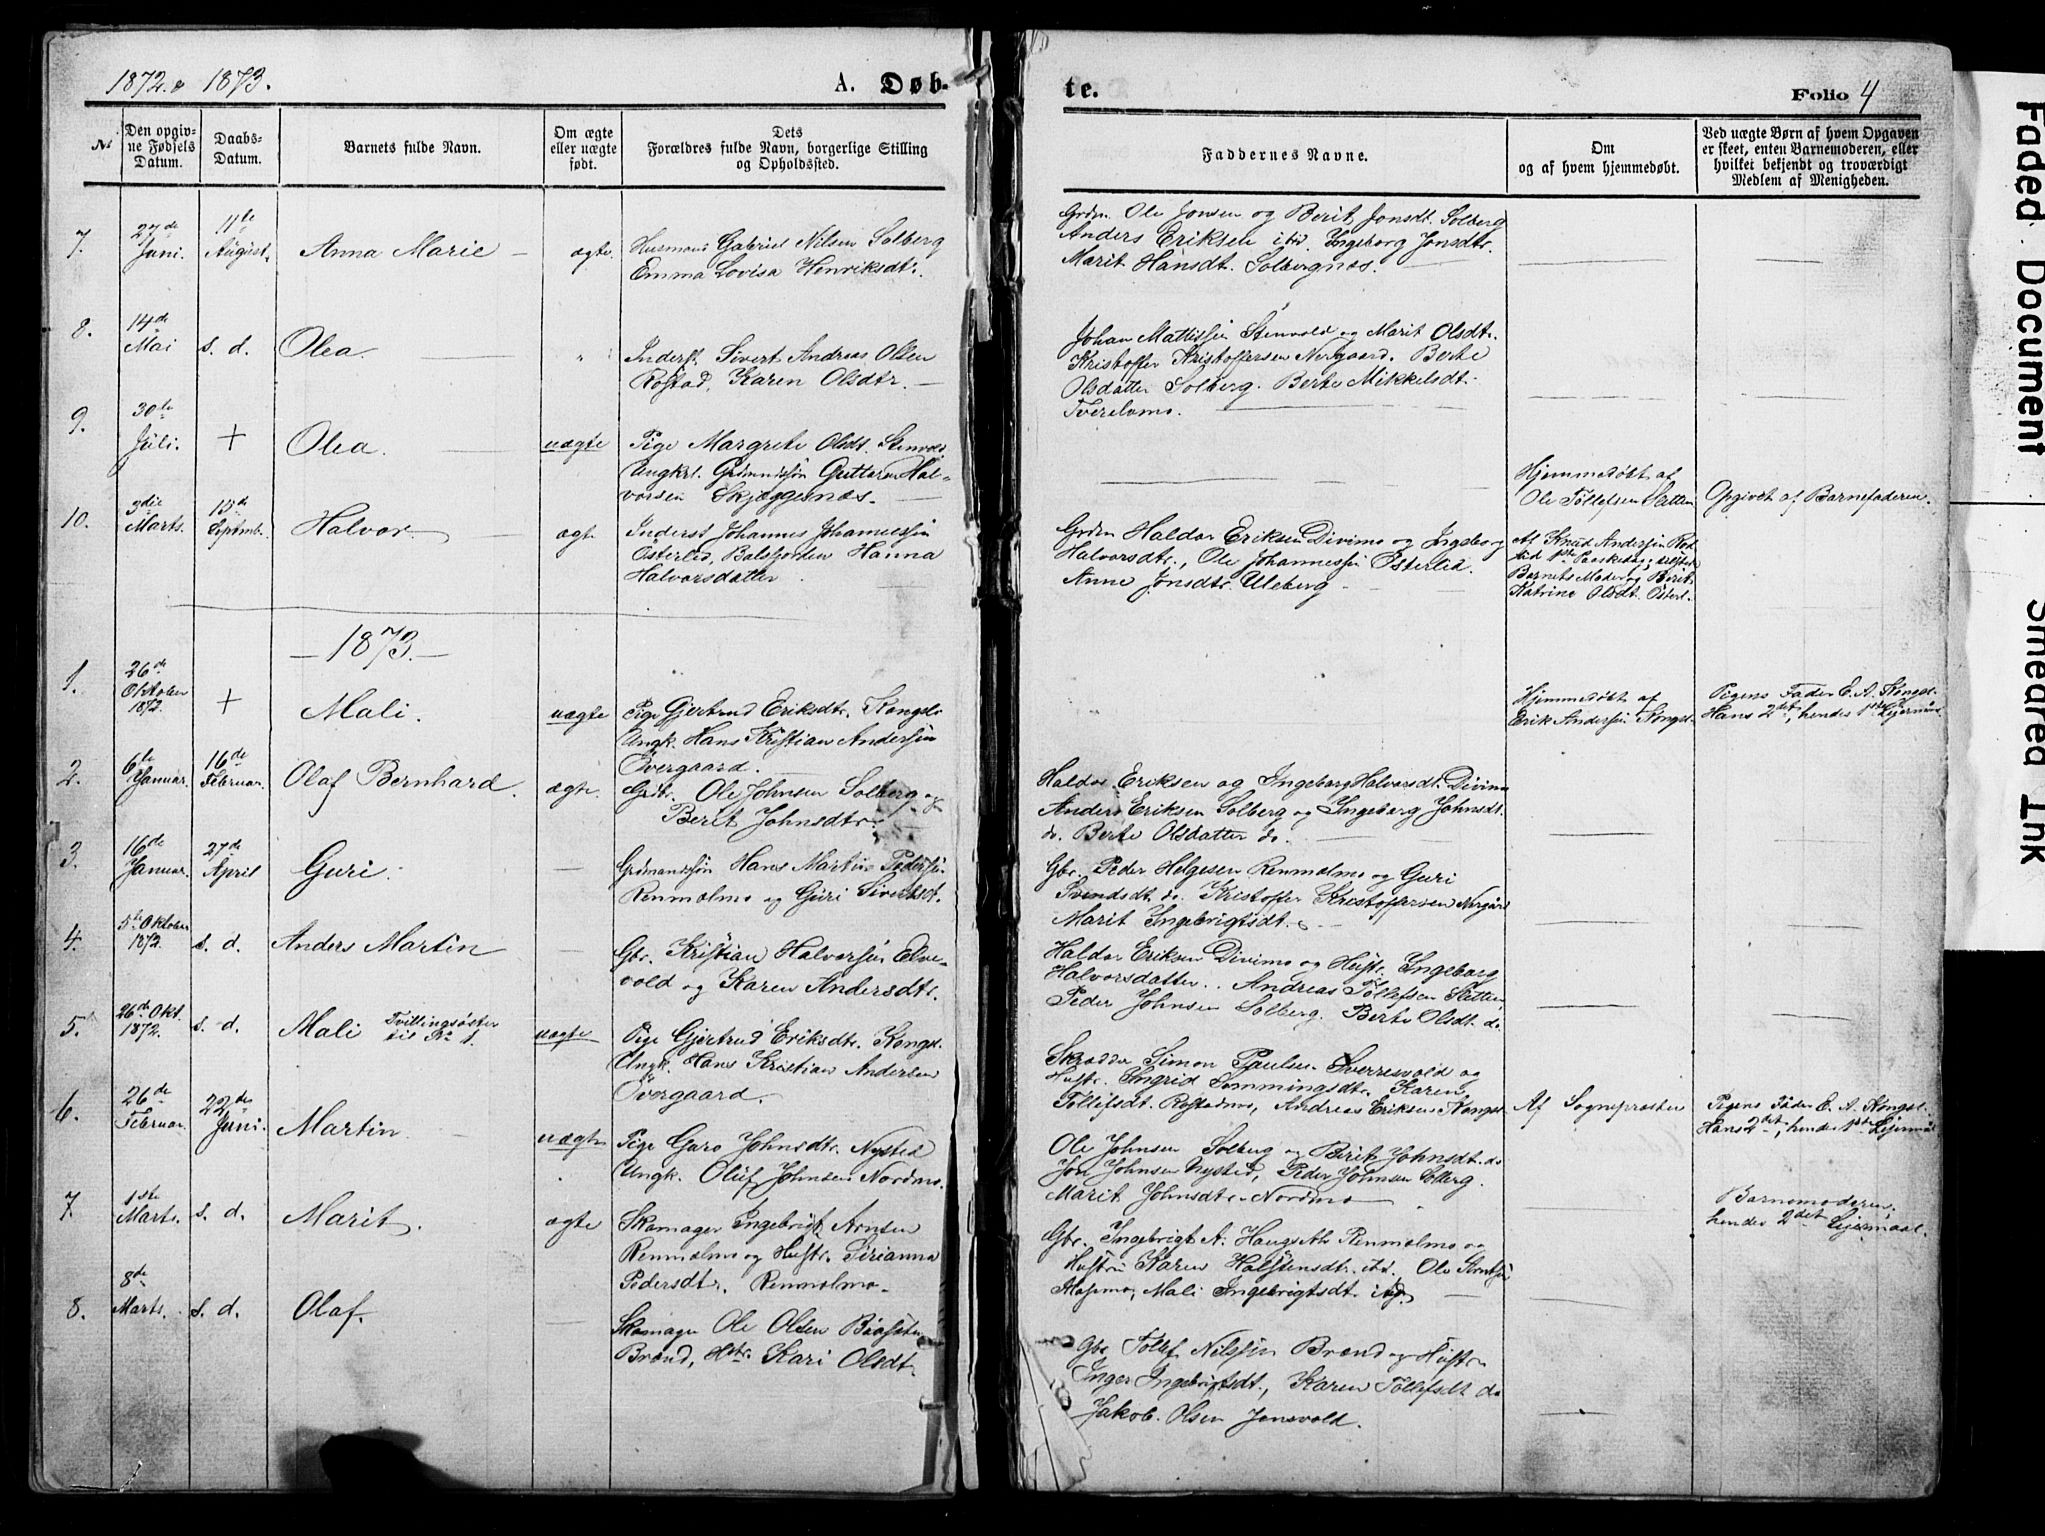 1872 & 1873.
A. Døb-
te.
Folio 4
№
Den opgiv-
ne Fødsels
Datum.
Daabs-
Datum.
Barnets fulde Navn.
Om ægte
eller uægte
født.
Dets
Forældres fulde Navn, borgerlige Stilling
og Opholdssted.
Faddernes Navne.
Om
og af hvem hjemmedøbt.
Ved uægte Børn af hvem Opgaven
er skeet, enten Barnemoderen, eller
hvilket bekjendt og troværdigt
Medlem af Menigheden.
7.
27de
Juni.
11te
August.
Anna Marie
ægte.
Husmand Gabriel Nilsen Solberg
Emma Lovisa Henriksdtr.
Grdm. Ole Jonsen og Berit Jonsdt. Solberg
Anders Eriksen ibid. Ingeborg Jonsdtr.
Marit Hansdt. Solbergnæs.
8.
14de
Mai
s. d.
Olea.
"
Inderst. Sivert Andreas Olsen
Rostad, Karen Olsdtr.
Johan Mattissen Stenvold og Marit Olsdt.
Kristoffer Kristoffersen Nergaard. Berte
Olsdatter Solberg. Berte Mikkelsdt.
Tverelvmo.
9.
30te
Juli.
+
Olea.
uægte
Pige Margrete Olsdt. Stenvold
Ungkrl. Grdmandssøn Guttorm Hal-
vorsen Skjæggenæs.
Hjemmedøbt af
Ole Tollefsen Sletten
Opgivet af Barnefaderen.
10.
3die
Marts.
15de
Septmb.
Halvor.
ægt.
Inderst Johannes Johannessen
Østerlid, Balsfjorden Hanna
Halvorsdatter
Grdm Haldor Eriksen Divimo og Ingeborg
Halvorsdtr., Ole Johannessen Østerlid.
Anne Jonsdtr. Uleberg
Af Knud Andersen Ros-
tad 1ste Paaskedag; tilstede
Barnets Moder og Berit
Katrine Olsdt. Østerl.
1873.
1.
26de
Oktober
1872.
+
Mali.
uægte
Pige Gjertrud Eriksdtr. Kongsl.
Ungk. Hans Kristian Andersen
Øvergaard.
Hjemmedøbt af
Erik Andersen Kongsl.
Pigens Fader E. A. Kongsl.
Hans 2det, hendes 1ste Leiermaal
2.
6te
Januar.
16de
Februar.
Olaf Bernhard.
ægte.
Grdbr. Ole Johnsen Solberg og
Berit Johnsdtr.
Haldor Eriksen og Ingeborg Halvorsdt. Divimo
Anders Eriksen Solberg og Ingeborg Johnsdt.
do. Berte Olsdatter do
3.
16de
Januar.
27de
April
Guri.
Grdmandssøn Hans Martin Pedersen
Renmælmo og Guri Sivertsdt.
Gbr. Peder Helgesen Renmælmo og Guri
Svendsdt. do. Kristoffer Kristoffersen Nergård
Marit Ingebrigtsdt.
4.
5te Oktober
1872.
s. d.
Anders Martin
Gbr. Kristian Halvorsen Elve-
vold og Karen Andersdtr.
Haldor Eriksen Divimo og Hustr. Ingeborg
Halvorsdatter. Andreas Tollefsen Sletten
Peder Johnsen Solberg. Berte Olsdt. do
5.
26de Okt.
1872.
s. d.
Mali Tvillingsøster
til No 1.
uægte
Pige Gjertrud Eriksdtr. Kongsl.
Ungk. Hans Kristian Andersen
Øvergaard.
Skrædder Simon Paulsen Sverresvold og
Hustr. Ingrid Sommingsdtr. Karen
Tollefsdt. Rostadmo, Andreas Eriksen Kongsl.
Af Sognepresten
Pigens Fader E. A. Kongsl.
Hans 2det, hendes 1ste Leiermål
6.
26de
Februar.
22de
Juni.
Martin.
uægte
Pige Guro Johnsdtr. Nysted
Ungk. Oluf Johnsen Nordmo.
Ole Johnsen Solberg og Berit Johnsdt. do
Jon Johnsen Nysted, Peder Johnsen Solberg.
Marit Johnsdtr. Nordmo
Barnemoderen,
hendes 2det Leiermaal.
7.
1ste
Marts.
s. d.
Marit.
ægte
Skomager Ingebrigt Arntsen
Renmælmo og Hustr. Sirianna
Pedersdtr. Renmælmo.
Gbr. Ingebrigt A. Haugseth Renmælmo og
Hustru Karen Halstensdt. ibd. Ole Arntsen
Mosmo, Mali Ingebrigtsdt. ibd.
8.
8de
Marts.
s. d.
Olaf.
Skomager Ole Olsen
Brænd, Hstr. Kari Olsdt.
Gbr Tollef Nilssen Brænd og Hustru
Inger Ingebrigtsdt., Karen Tollefsdt do
Jakob Olsen Jonsvold.
Faded Document
Smeared Ink